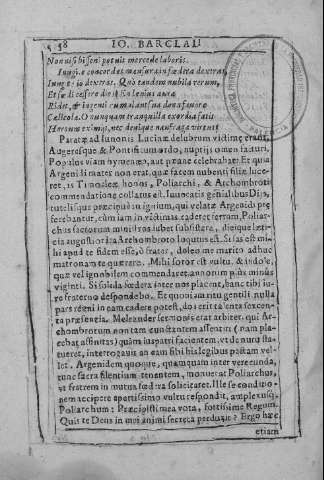 58 IO. BARCLAII
Non nisi bis seni potuit mercede laboris.
Iungite concordes mansura in fœdera dextras,
Iungite, io dextras. Quò tandem nubila rerum,
Et sæ di cessere dies? En lenius aura
Ridet, & ingenti cumulant sua dona favore
Cælicolæ. O nunquam tranquilla exordia fatis
Heroum eximijs, nec denique naufraga virtus!
Paratæ ad Iunonis Lucinæ delubrum victimæ erant,
Auguresque & Pontifici modo, nuptijs omen facturi.
Populus viam hymenæo, aut pæane celebrabat. Et quia
Argenidi mater non erat, quæ facem nubenti filiæ luceret,
is Timoleæ honos, Poliarchi, & Archombroti
commendatione collatus est. Invocatis genialibus Diis,
tutelisque præcipuè in ignium, qui velatæ Argenidi præferebantur,
cùm iam in victimas caderet ferrum, Poliarchus
sacrorum ministros iubet subsistere, dieique lætitia
augustior ita Archombroto loquutus est. Si sas est mihi
apud te fidem esse, ô frater, doleo me marito adhuc
matronam te quærere. Mihi soror est vultu, & indole,
quæ vel ignobilem commendaret, annorum plùs minus
viginti. Si solida fœdera inter nos placent, hanc tibi iure
fraterno despondebo. Et quoniam ritu gentili nulla
pars regni in eam cadere potest, dos erit talenta sexcenta
præsentia. Meleander sermonis erat arbiter, qui Archombrotum
non tam cunctantem assentiri (nam placebat
affinitas) quàm iuspatri facientem, vt de nuru statueret,
interrogavit an eam sibi hislegibus pactam vellet.
Argenidem quoque, quamquam inter verecunda,
tunc sacra silentium tenentem, monuerat Poliarchus,
vt fratrem in mutua fœdera solicitaret. Ille se conditionem
accipere apertissimo vultu respondit, amplexusq.
Poliarchum: Præcipis ti mea vota, fortissime Regum.
Quis te Deus in mei animi secreta perduxit? Ergo hæc
etiam